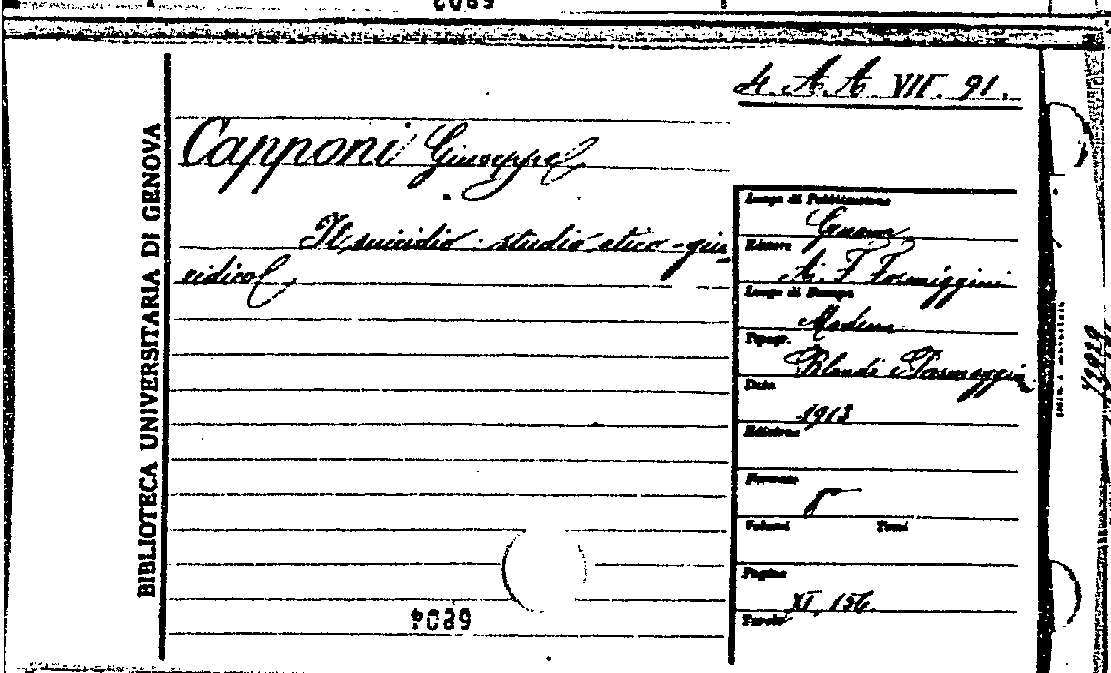 4. A A VII. 91.
BIBLIOTECA UNIVERSITARIA DI GENOVA
Capponi Giuseppe
Il suicidio - studio etico-giu-
ridico
Luogo di Pubblicazione
Genova
Editore
A. F. Formiggini
Luogo di Stampa
Modena
Tipogr.
Blondi e Parmeggiani
Data
1913
Edizione
Formato
8
Volumi Tomi
Pagine
XI, 156.
Tavole
6804